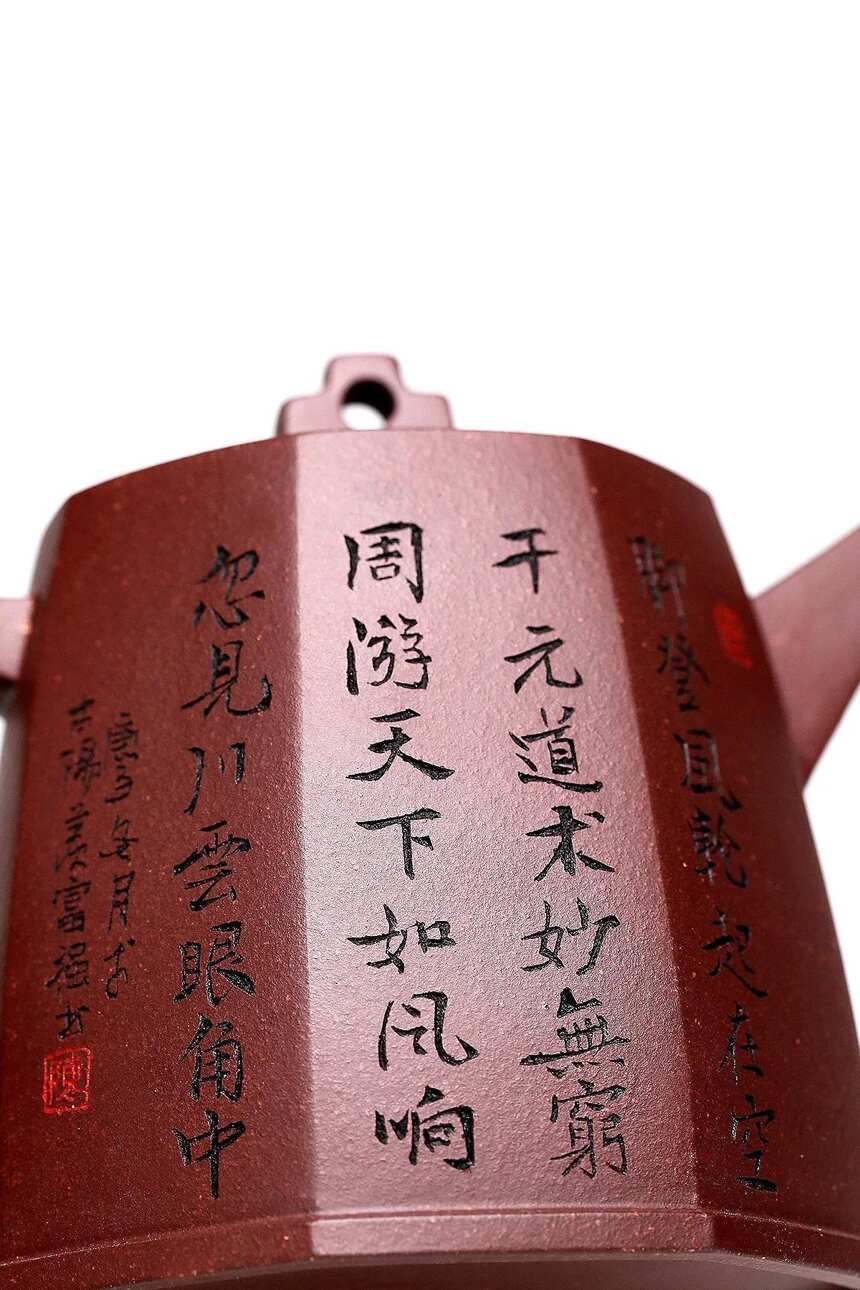 脚登風輪起在空
干元道术妙無窮
周游天下如风响
忽見川雲眼角中
庚子月于
古陽羡富强书